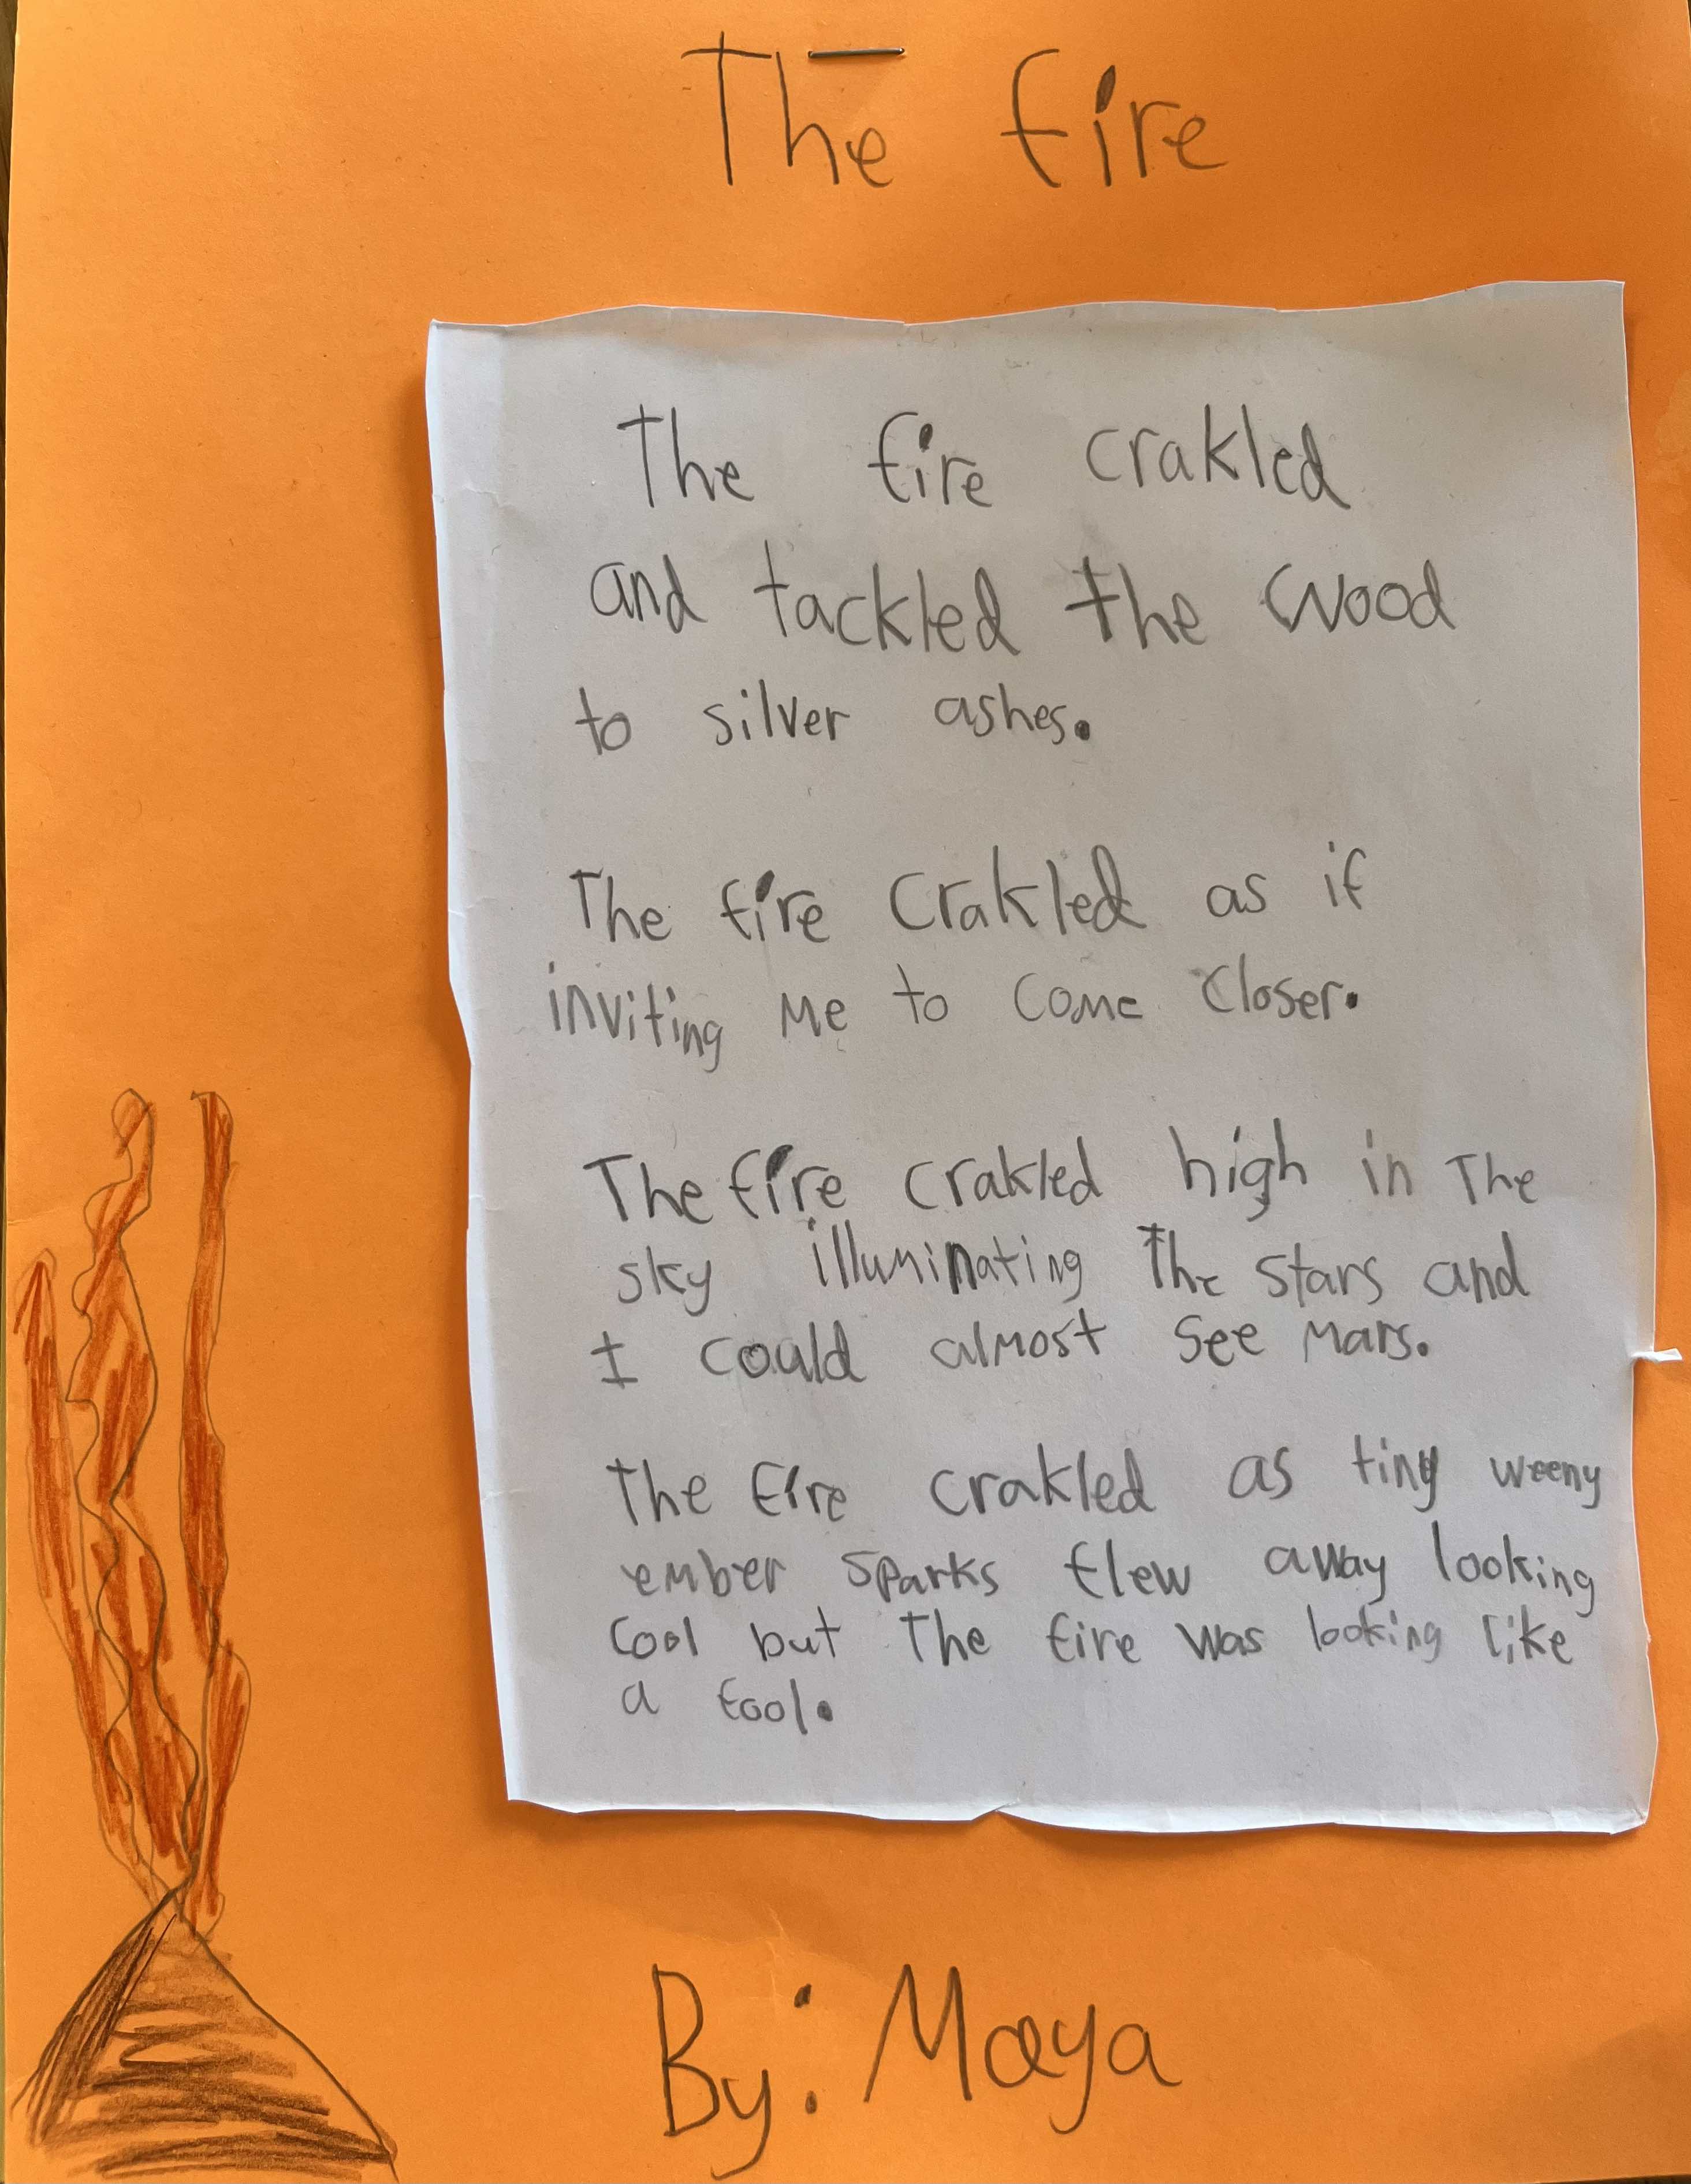 The fire
The fire crakled
and tackled the wood
to silver ashes.
The fire crakled as if
inviting me to come closer.
The fire crakled high in the
sky illuminating the stars and
I could almost see mars.
The fire crakled as tiny weeny
ember sparks flew away looking
cool but the fire was looking like
a fool.
By: Maya